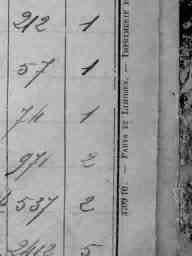 212 1
57 1
74 1
971 2
537 2
2412 5
33910. — PARIS ET LIMOGES. — IMPRIMERIE